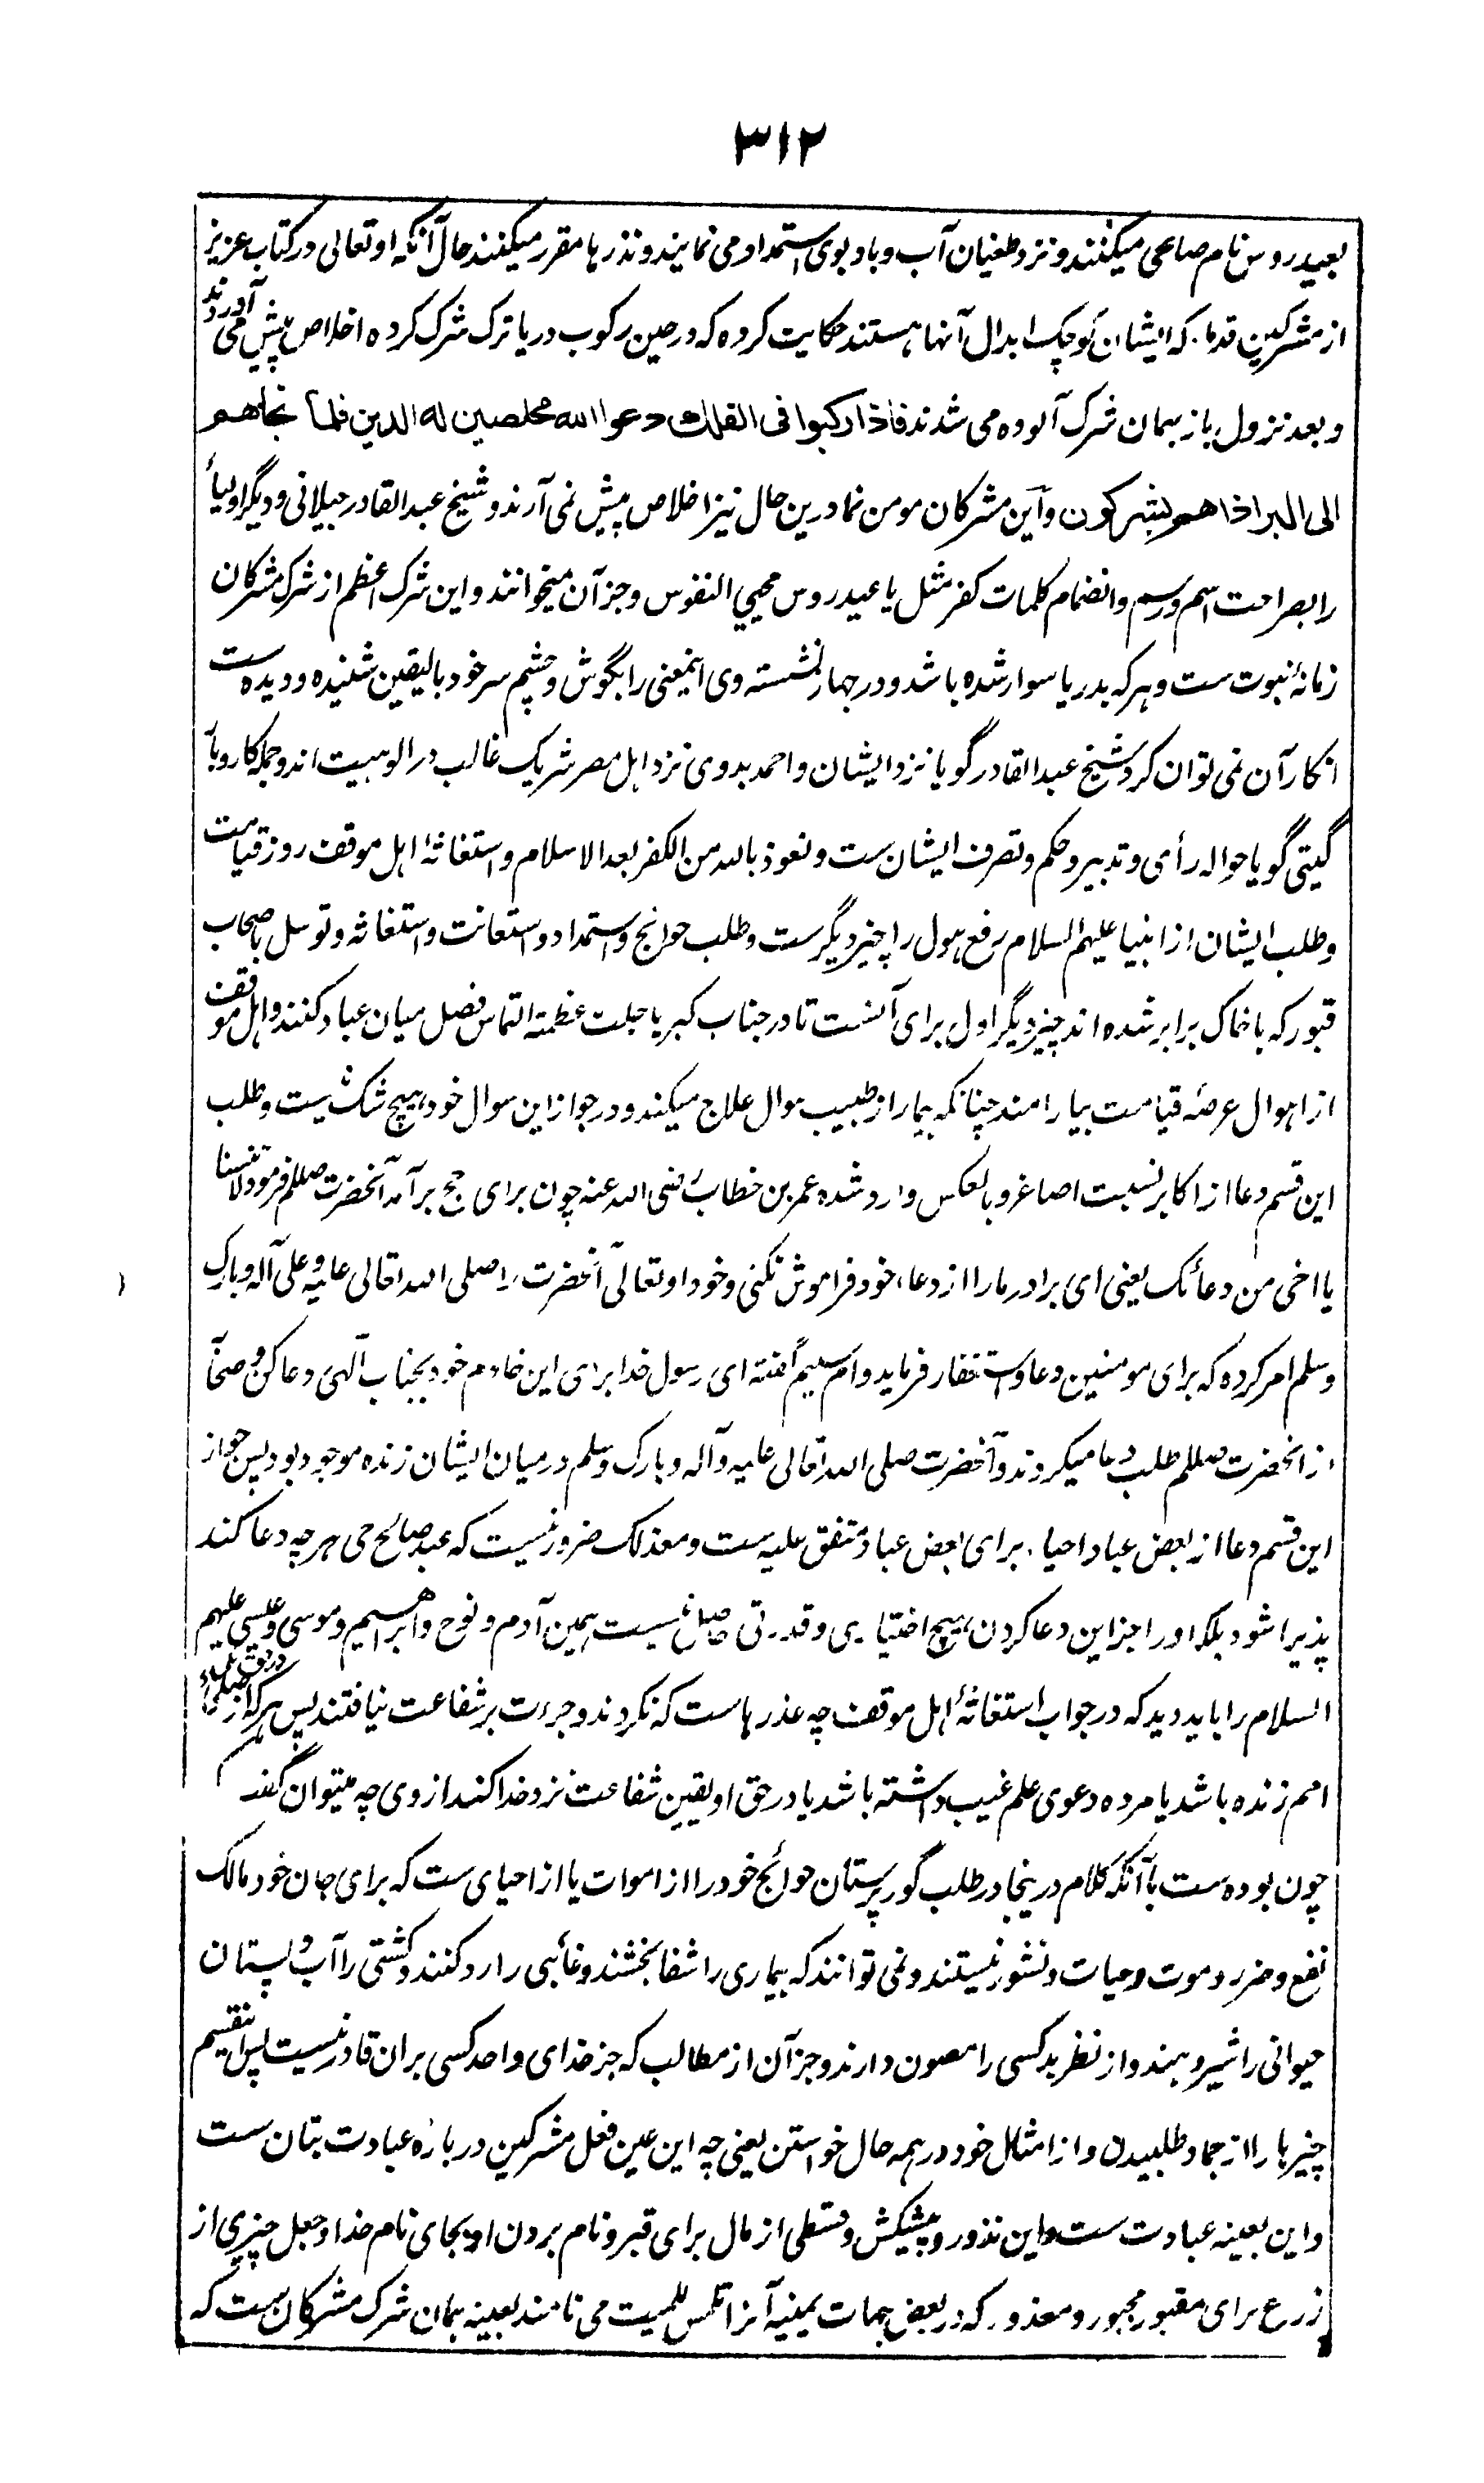 ۳۱۲
بعیدروس نام صاحبی میکنند و نزد طغیان آب و باد بوی استمداد می نمایند و نذرها مقرر میکنند حال آنکه او تعالی در کتاب عزیز
از مشرکین قدما که ایشان کوچک ابدال آنها هستند حکایت کرده که در حین رکوب دریا ترک شرک کرده اخلاص پیش می آوردند
و بعد نزول باز بهمان شرک آلوده می شدند فاذا رکبوا فی الفلک دعوا الله مخلصین له الدین فلما نجاهم
الی البر اذا هم یشرکون و این مشرکان مومن نما درین حال نیز اخلاص پیش نمی آرند و شیخ عبدالقادر جیلانی و دیگر اولیأ
را بصراحت اسم و رسم و انضمام کلمات کفر مثل یا عیدروس محیی النفوس و جز آن میخوانند و این شرک اعظم از شرک مشرکان
زمانهٔ نبوت ست و هر که بدریا سوار شده باشد و در جهاز نشسته وی اینمعنی را بگوش و چشم سر خود بالیقین شنیده و دیده ست
انکار آن نمی توان کرد شیخ عبدالقادر گویا نزد ایشان و احمد بدوی نزد اهل مصر شریک غالب در الوهیت اند و جمله کاروبار
گیتی گویا حواله رأی و تدبیر و حکم و تصرف ایشان ست و نعوذ بالله من الکفر بعد الاسلام و استغاثهٔ اهل موقف روز قیامت
و طلب ایشان از انبیا علیهم السلام رفع هول را چیز دیگر ست و طلب حوائج و استمداد و استعانت و استغاثه و توسل باصحاب
قبور که با خاک برابر شده اند چیز دیگر اول برای آنست تا در جناب کبریا جلت عظمته التماس فصل میان عباد کنند و اهل موقف
از اهوال عرصهٔ قیامت بیارامند چنانکه بیمار از طبیب سوال علاج میکند و در جواز این سوال خود هیچ شک نیست و طلب
این قسم دعا از اکابر نسبت اصاغر و بالعکس وارد شده عمر بن خطاب رضی الله عنه چون برای حج برآمد آنحضرت صللم فرمود لا تنسنا
یا اخی من دعائک یعنی ای برادر ما را از دعاء خود فراموش نکنی و خود او تعالی آنحضرت را صلی الله تعالی علیه و علی آله و بارک
و سلم امر کرده که برای مومنین دعا و استغفار فرماید و ام سلیم گفته ای رسول خدا برای این خادم خود بجناب آلهی دعا کن و صحا
از انحضرت صللم طلب دعا میکردند و آنحضرت صلی الله تعالی علیه و آله و بارک و سلم در میان ایشان زنده موجود بود پس جواز
این قسم دعا از بعض عباد احیاء برای بعض عباد متفق علیه ست و معذلک ضرور نیست که عبد صالح حی هر چه دعا کند
پذیرا شود بلکه او را جز این دعا کردن هیچ اختیاری و قدرتی حاصل نیست همین آدم و نوح و ابراهیم و موسی و عیسی علیهم
السلام را باید دید که در جواب استغاثهٔ اهل موقف چه عذرهاست که نکردند و جرءت بر شفاعت نیافتند پس هر که از
امم زنده باشد یا مرده دعوی علم غیب داشته باشد یا در حق او یقین شفاعت نزد خدا کند از وی چه میتوان گفت
چون بوده ست با آنکه کلام درینجا در طلب گور پرستان حوائج خود را از اموات یا از احیای ست که برای جان خود مالک
نفع و ضرر و موت و حیات و نشور نیستند و نمی توانند که بیماری را شفا بخشند و غائبی را رد کنند و کشتی را آب و پستان
حیوانی را شیر دهند و از نظر بد کسی را مصون دارند و جز آن از مطالب که جز خدای واحد کسی بران قادر نیست پس اینقسیم
چیزها را از جماد طلبیدن و از امثال خود در همه حال خواستن یعنی چه این عین فعل مشرکین در بارهٔ عبادت بتان ست
و این بعینه عبادت ست و این نذور و پیشکش و قسطی از مال برای قبر و نام بردن او بجای نام خدا و جعل چیزی از
زرع برای مقبور مجبور و معذور که در بعض جهات یمنیه آنرا تلمس للمیت می نامند بعینه همان شرک مشرکان ست که